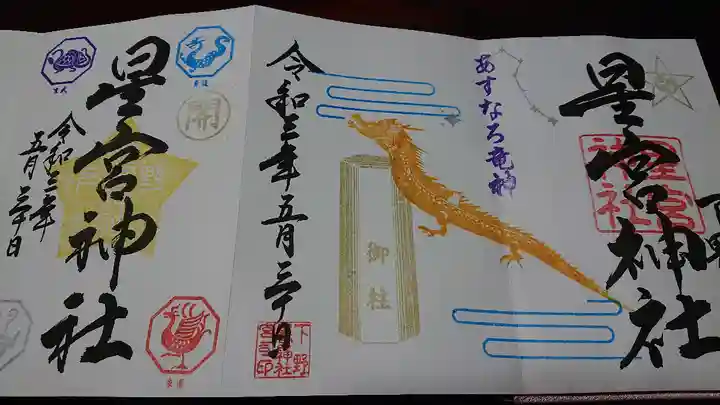 下野
星宮神社
星宮
神社
あすなろ竜神
御柱
令和三年五月三十日
星宮神社
開
令和三年
五月三十日